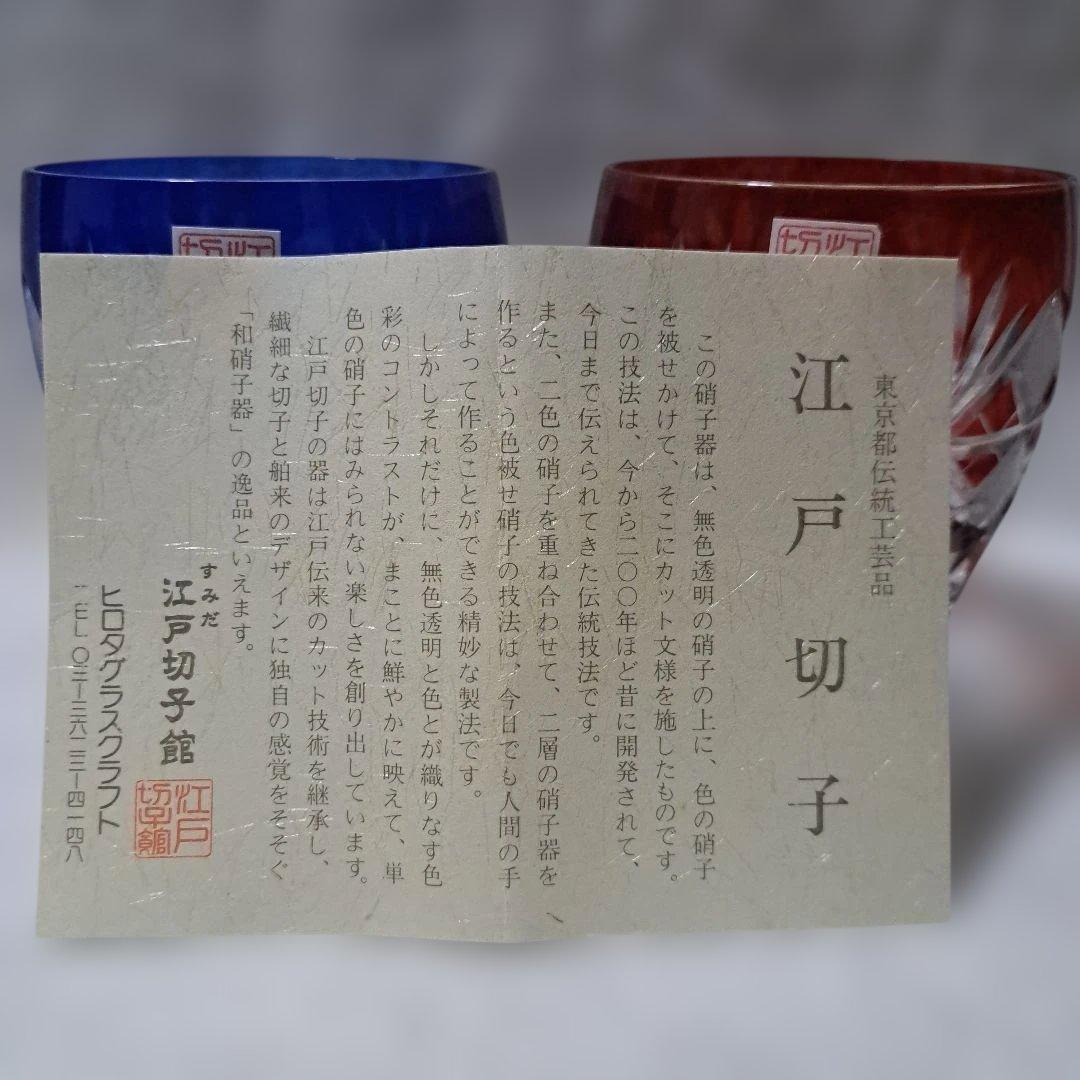 東京都伝統工芸品
江戸切子
この硝子器は、無色透明の硝子の上に、色の硝子
を被せかけて、そこにカット文様を施したものです。
この技法は、今から二〇〇年ほど昔に開発されて、
今日まで伝えられてきた伝統技法です。
また、二色の硝子を重ね合わせて、二層の硝子器を
作るという色被せ硝子の技法は、今日でも人間の手
によって作ることができる精妙な製法です。
しかしそれだけに、無色透明と色とが織りなす色
彩のコントラストが、まことに鮮やかに映えて、単
色の硝子にはみられない楽しさを創り出しています。
江戸切子の器は江戸伝来のカット技術を継承し、
繊細な切子と舶来のデザインに独自の感覚をそそぐ
「和硝子器」の逸品といえます。
すみだ
江戸切子館
江戸
切子館
ヒロタグラスクラフト
TEL〇三―三六二三―四一四八
江
切
江
切